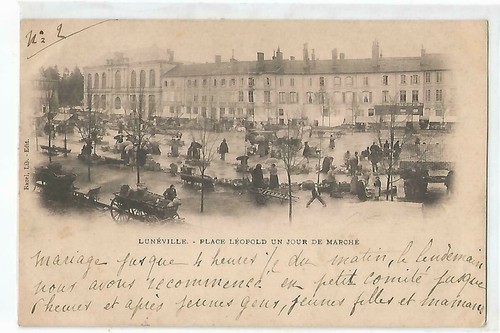 No 2
LUNÉVILLE. - PLACE LÉOPOLD UN JOUR DE MARCHÉ
Bastl, Lib. - Edit.
Mariage jusque 4 heures 1/2 du matin, le lendemain
nous avons recommencé en petit comité jusque
1 heure et après jeunes gens, jeunes filles et mamans